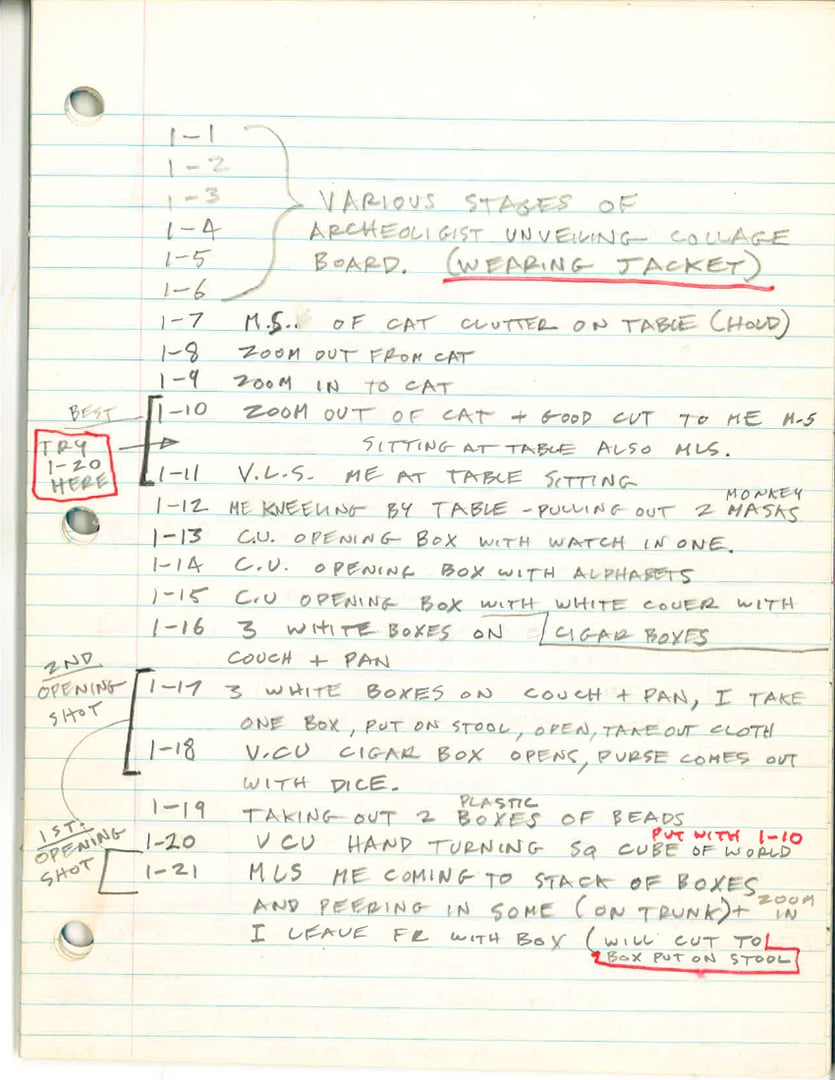 1-1
1-2
1-3 VARIOUS STAGES OF
1-4 ARCHEOLIGIST UNVEILING COLLAGE
1-5 BOARD. (WEARING JACKET)
1-6
1-7 M.S.. OF CAT CLUTTER ON TABLE (HOLD)
1-8 ZOOM OUT FROM CAT
1-9 ZOOM IN TO CAT
BEST 1-10 ZOOM OUT OF CAT + GOOD CUT TO ME M-S
SITTING AT TABLE ALSO MLS.
TRY
1-20
HERE
1-11 V.L.S. ME AT TABLE SITTING
1-12 ME KNEELING BY TABLE - PULLING OUT 2 MONKEY MASKS
1-13 C.U. OPENING BOX WITH WATCH IN ONE.
1-14 C.U. OPENING BOX WITH ALPHABETS
1-15 C.U OPENING BOX WITH WHITE COVER WITH
CIGAR BOXES
1-16 3 WHITE BOXES ON
COUCH + PAN
2ND
OPENING
SHOT
1-17 3 WHITE BOXES ON COUCH + PAN, I TAKE
ONE BOX, PUT ON STOOL, OPEN, TAKE OUT CLOTH
1-18 V.CU CIGAR BOX OPENS, PURSE COMES OUT
WITH DICE.
1-19 TAKING OUT 2 PLASTIC BOXES OF BEADS
1ST:
OPENING
SHOT
1-20 VCU HAND TURNING SQ CUBE OF WORLD
PUT WITH 1-10
1-21 MLS ME COMING TO STACK OF BOXES
AND PEERING IN SOME (ON TRUNK) + ZOOM IN
I LEAVE FR WITH BOX (WILL CUT TO
BOX PUT ON STOOL